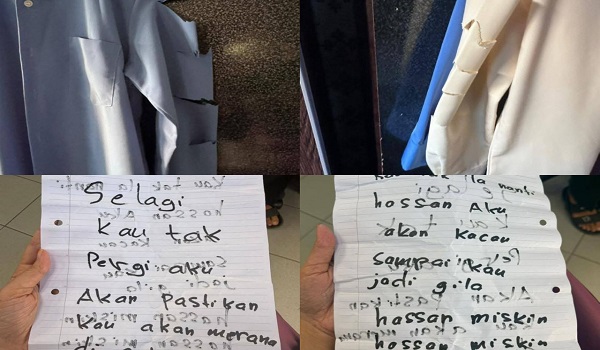 Selagi
kau tak
Pergi aku
Akan Pastikan
kau akan merana
nanti
hossan Aku
akan kacau
sampai kau
jadi gila
hossan miskin
hossan miskin